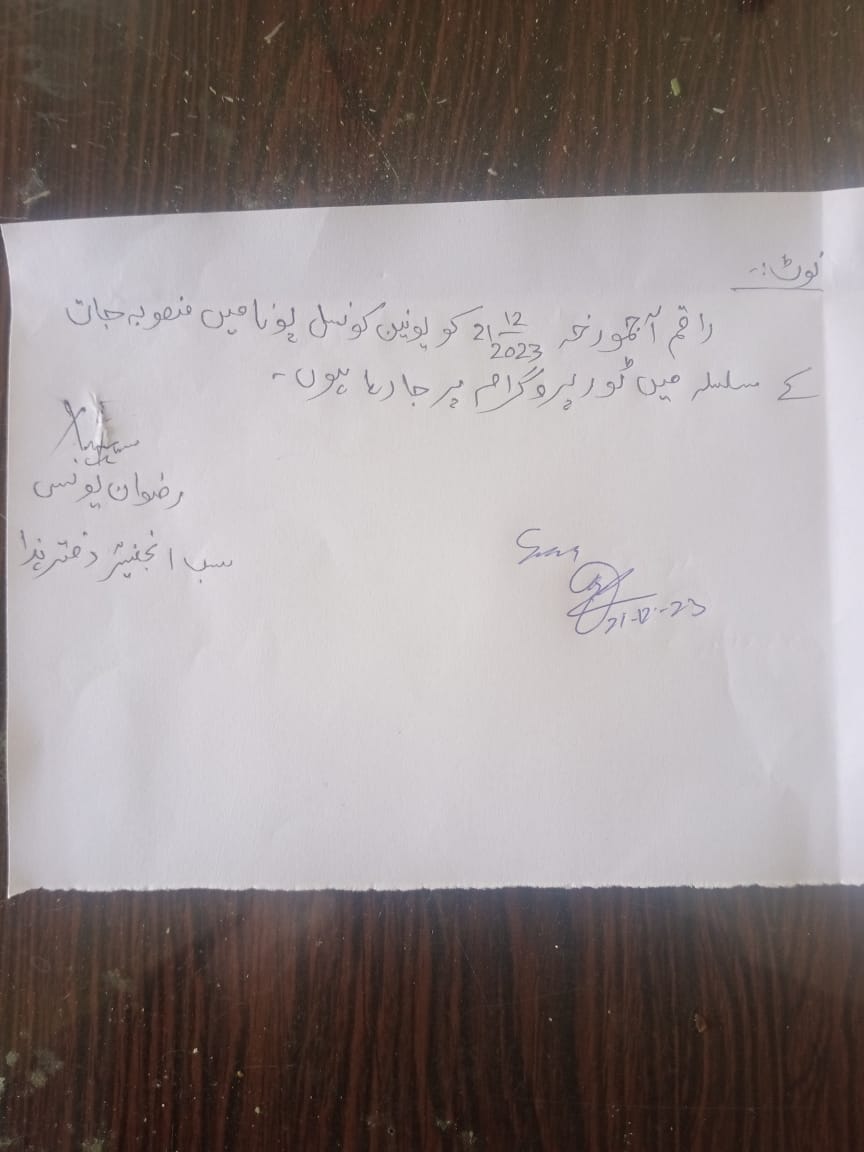 نوٹ:۔
راقم آجمورخہ 21 12/2023 کو یونین کونسل پونا میں منصوبہ جات
کے سلسلہ میں ٹور پروگرام پر جا رہا ہوں۔
رضوان یونس
سب انجنیئر دفتر ہذا
21-12-23